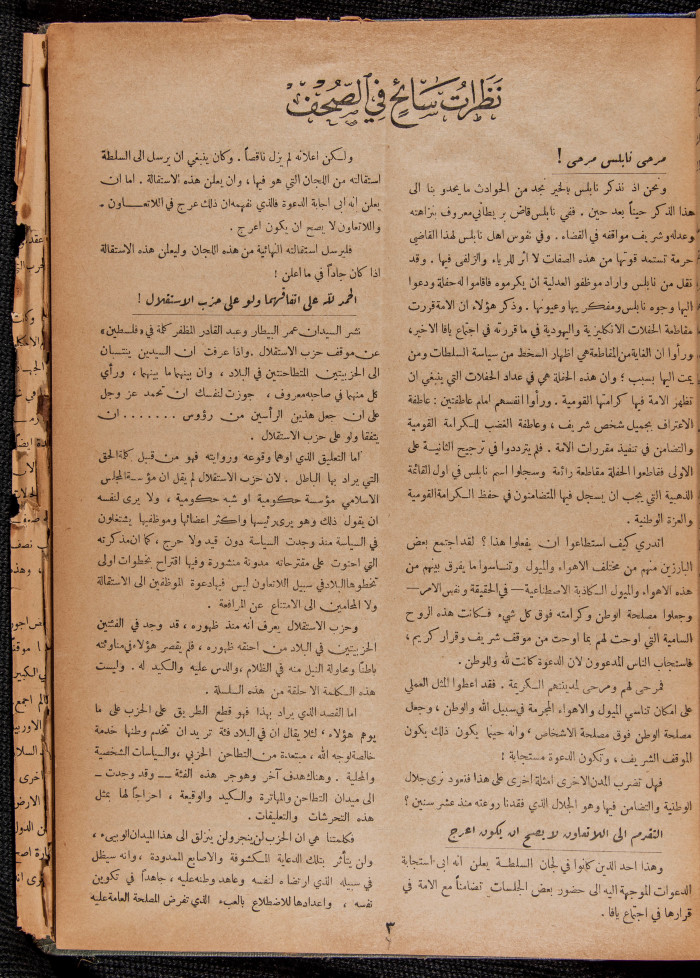 نَظَرَاتُ سَائِحٍ فِي الصُّحُفِ
مرحى نابلس مرحى !
ونحن اذ نذكر نابلس بالخير نجد من الحوادث ما يحدو بنا الى
هذا الذكر حيناً بعد حين . ففي نابلس قاض بريطاني معروف بنزاهته
وعدله وشريف مواقفه في القضاء . وفي نفوس اهل نابلس لهذا القاضي
حرمة تستمد قوتها من هذه الصفات لا اثر للرياء والزلفى فيها . وقد
نقل من نابلس واراد موظفو العدلية ان يكرموه فاقاموا له حفلة ودعوا
اليها وجوه نابلس ومفكريها وعيونها . وذكر هؤلاء ان الامة قررت
مقاطعة الحفلات الانكليزية واليهودية في ما قررته في اجتماع يافا الاخير،
ورأوا ان الغاية من المقاطعة هي اظهار السخط من سياسة السلطات ومن
يمت اليها بسبب ؛ وان هذه الحفلة هي في عداد الحفلات التي ينبغي ان
تظهر الامة فيها كرامتها القومية . ورأوا انفسهم امام عاطفتين : عاطفة
الاعتراف بجميل شخص شريف ، وعاطفة الغضب للكرامة القومية
والتضامن في تنفيذ مقررات الامة . فلم يترددوا في ترجيح الثانية على
الاولى فقاطعوا الحفلة مقاطعة رائعة وسجلوا اسم نابلس في اول القائمة
الذهبية التي يجب ان يسجل فيها المتضامنون في حفظ الكرامة القومية
والعزة الوطنية .
اتدري كيف استطاعوا ان يفعلوا هذا ؟ لقد اجتمع بعض
البارزين منهم من مختلف الاهواء والميول وتناسوا ما يفرق بينهم من
هذه الاهواء والميول الكاذبة الاصطناعية — في الحقيقة ونفس الامر —
وجعلوا مصلحة الوطن وكرامته فوق كل شيء فكانت هذه الروح
السامية التي اوحت لهم بما اوحت من موقف شريف وقرار كريم ،
فاستجاب الناس المدعوون لان الدعوة كانت لله وللوطن .
فمرحى لهم ومرحى لمدينتهم الكريمة . فقد اعطوا المثل العملي
على امكان تناسي الميول والاهواء المجرمة في سبيل الله والوطن ، وجعل
مصلحة الوطن فوق مصلحة الاشخاص ، وانه حينما يكون ذلك يكون
الموقف الشريف ، وتكون الدعوة مستجابة !
فهل تضرب المدن الاخرى امثلة اخرى على هذا فنعود نرى جلال
الوطنية والتضامن فيها وهو الجلال الذي فقدنا روعته منذ عشر سنين ؟
التقدم الى اللاتعاون لا يصح ان يكون اعرج
وهذا احد الذين كانوا في لجان السلطة يعلن انه ابى استجابة
الدعوات الموجهة اليه الى حضور بعض الجلسات تضامناً مع الامة في
قرارها في اجتماع يافا .
ولكن اعلانه لم يزل ناقصاً . وكان ينبغي ان يرسل الى السلطة
استقالته من اللجان التي هو فيها ، وان يعلن هذه الاستقالة . اما ان
يعلن انه ابى اجابة الدعوة فالذي نفهمه ان ذلك عرج في اللاتعاون ـ
واللاتعاون لا يصح ان يكون اعرج .
فليرسل استقالته النهائية من هذه اللجان وليعلن هذه الاستقالة
اذا كان جاداً في ما اعلن !
الحمد لله على اتفاقهما ولو على حزب الاستقلال !
نشر السيدان عمر البيطار وعبد القادر المظفر كلمة في «فلسطين»
عن موقف حزب الاستقلال . واذا عرفت ان السيدين ينتسبان
الى الحزبيتين المتطاحنتين في البلاد ، وان بينهما ما بينهما ، ورأي
كل منهما في صاحبه معروف ، جوزت لنفسك ان تحمد عز وجل
على ان جعل هذين الرأسين من رؤوس ....... ان
يتفقا ولو على حزب الاستقلال .
اما التعليق الذي اوهما وقوعه وروايته فهو من قبيل كلمة الحق
التي يراد بها الباطل . لان حزب الاستقلال لم يقل ان مؤسسة المجلس
الاسلامي مؤسسة حكومية او شبه حكومية ، ولا يرى لنفسه
ان يقول ذلك وهو يرى رئيسها واكثر اعضائها وموظفيها يشتغلون
في السياسة منذ وجدت السياسة دون قيد ولا حرج ، كما ان مذكرته
التي احتوت على مقترحاته مدونة منشورة وفيها اقتراح بخطوات اولى
تخطوها البلاد في سبيل اللاتعاون ليس فيها دعوة الموظفين الى الاستقالة
ولا المحامين الى الامتناع عن المرافعة .
وحزب الاستقلال يعرف أنه منذ ظهوره ، قد وجد في الفئتين
الحزبيتين في البلاد من احنقه ظهوره ، فلم يقصر هؤلاء في مناوئته
باطناً ومحاولة النيل منه في الظلام ، والدس عليه والكيد له . وليست
هذه الكلمة الا حلقة من هذه السلسلة .
اما القصد الذي يراد بهذا فهو قطع الطريق على الحزب على ما
يوهم هؤلاء ، لئلا يقال ان في البلاد فئة تريد ان تخدم وطنها خدمة
خالصة لوجه الله ، مبتعدة من التطاحن الحزبي ، والسياسات الشخصية
والمحلية . وهناك هدف آخر وهو جر هذه الفئة ــ وقد وجدت ــ
الى ميدان التطاحن والمهاترة والكيد والوقيعة ، احراجاً لها بمثل
هذه التحرشات والتعليقات .
فكلمتنا هي ان الحزب لن ينجر ولن ينزلق الى هذا الميدان الوبيء ،
ولن يتأثر بتلك الدعاية المكشوفة والاصابع الممدودة ، وانه سيظل
في سبيله الذي ارتضاه لنفسه وعاهد وطنه عليه ، جاهداً في تكوين
نفسه ، واعدادها للاضطلاع بالعبء الذي تفرض المصلحة العامة عليه
٣